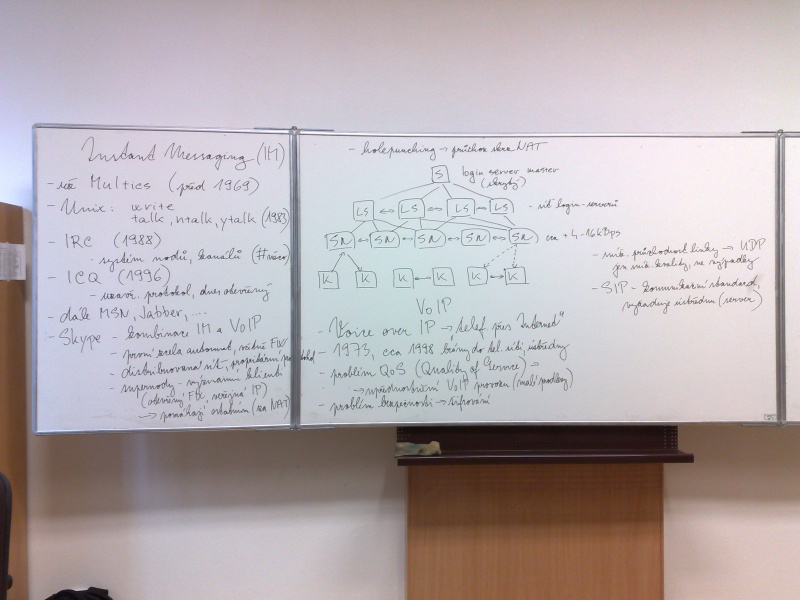 Instant Messaging (IM)
- již Multics (před 1969)
- Unix: write
talk, ntalk, ytalk (1983)
- IRC (1988)
- systém nodů, kanálů (#
- ICQ (1996)
- uzavř. protokol, dnes otevřený
- dále MSN, Jabber, ...
- Skype - kombinace IM a VoIP
- první zcela automat, včetně FW
- distribuovaná síť, proprietární protokol
- supernody - významní klienti
(otevřený FW, veřejná IP)
→ pomáhají ostatním (za NAT)
- holepunching → průchod skrz NAT
S login server master
(skrytý)
LS LS LS LS - síť login-serverů
SN SN SN SN SN cca + 4-16kBps
K K K K K K
VoIP
- Voice over IP → "telef. přes Internet"
- 1973, cca 1998 brány do tel. sítí, ústředny
- problém QoS (Quality of Service) →
→ upřednostnění VoIP provozu (malé prodlevy)
- problém bezpečnosti → šifrování
- průchodnost linky → UDP
jen kvality, ne výpadky
- SIP - komunikační standard,
vyžaduje ústřednu (server)